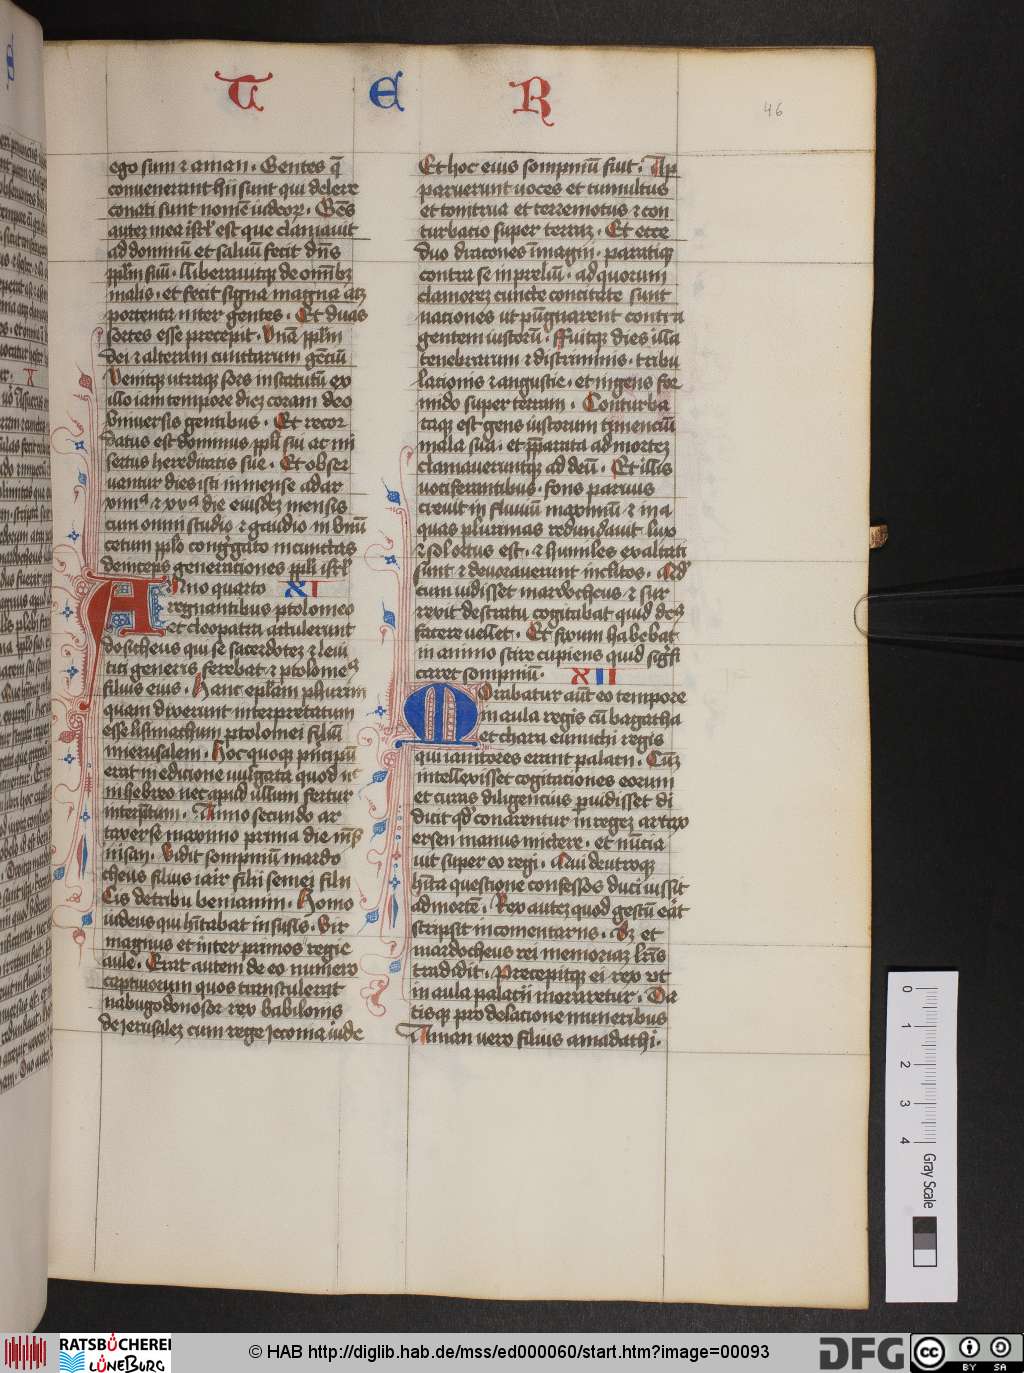 T E R
46
ego sum ⁊ aman . Gentes q̄
convenerant hii sunt qui delere
conati sunt nomē iudeoꝝ . Gēs
autez mea isrl̄ est que clamavit
ad dominū et salvū fecit dn̄s
pplm̄ suū . Liberavitqꝫ de omībꝫ
malis . et fecit signa magna atqꝫ
portenta inter gentes . Et duas
sortes esse precepit . Unā ppl̄m
dei ⁊ alteram cunctarum gēciū
Venitqꝫ utraqꝫ sors in statutū ex
illo iam tempore diez coram deo
universis gentibus . Et recor
datus est dominus ppl̄i sui ac mi
sertus hereditatis sue . Et obser
vantur dies isti in mense adar
xiiii ⁊ xvᵃ die eiusdez mensis
cum omni studio ⁊ gaudio in unū
cetum ppl̄o congregato in cunctas
deinceps generaciones ppl̄i isrl̄
Anno quarto XI
regnantibus ptolomeo
et cleopatra attulerunt
dositheus qui se sacerdotez ⁊ levi
tici generis ferebat ⁊ ptolomeꝰ
filius eius . Hanc epl̄am phurim
quam dixerunt interpretatum
esse lisimachum ptolomei filiū
in ierusalem . Hoc quoqꝫ pricipiū
erat in edicione vulgata quod nec
in hebreo nec apud ullum fertur
interpretum . Anno secundo ar
taxerse maximo prima die mēs
nisan . Vidit sompniū mardo
cheus filius iair filii semei filii
Cis de tribu beniamin . Homo
iudeus qui hītabat in susis . Vir
magnus et inter primos regie
aule . Erat autem de eo numero
captivorum quos transtulerat
nabugodonosor rex babilonis
de ierusalez cum rege iechonia iude
Et hoc eius sompniū fuit . Ap
paruerunt voces et tumultus
et tonitrua et terremotus ⁊ con
turbatio super terraz . Et ecce
duo dracones magni . paratiqꝫ
contra se in preliū . ad quorum
clamorez cuncte concitate sunt
naciones ut pugnarent contra
gentem iustorū . Fuitqꝫ dies illa
tenebrarum ⁊ discriminis . tribu
lacionis ⁊ angustie . et ingens for
mido super terram . Conturba
taqꝫ est gens iustorum timenciū
mala sua . et preparata ad mortez
clamaveruntqꝫ ad deū . Et illis
vociferantibus . fons parvus
crevit in fluvium maximū ⁊ in a
quas plurimas redundavit lux
⁊ sol ortus est . ⁊ humiles exaltati
sunt ⁊ devoraverunt inclitos . Qd̄
cum vidisset mardocheus ⁊ sur
rexit de stratu cogitabat quid deꝰ
facere vellet . Et fixum habebat
in animo scire cupiens quid sigīfi
caret sompniū . XII
Morabatur aūt eo tempore
in aula regis cū bagatha
et thara eunuchi regis
qui ianitores erant palacii . Cūqꝫ
intellexisset cogitaciones eorum
et curas diligencius pvidisset di
dicit qd̄ conarentur in regez artax
ersen manus mictere . et nūcia
vit super eo regi . Qui de utroqꝫ
hīta questione confessos duci iussit
ad mortē . Rex autez quod gestū erat
scripsit in comentariis . Sꝫ et
mardocheus rei memoriaz lrīs
tradidit . Precepitqꝫ ei rex ut
in aula palacii moraretur . Da
tisqꝫ pro delacione muneribus
Aman vero filius amadathi .
0
1
2
3
4
Gray Scale
RATSBÜCHEREI
LÜNEBURG
© HAB http://diglib.hab.de/mss/ed000060/start.htm?image=00093
DFG
cc
BY SA